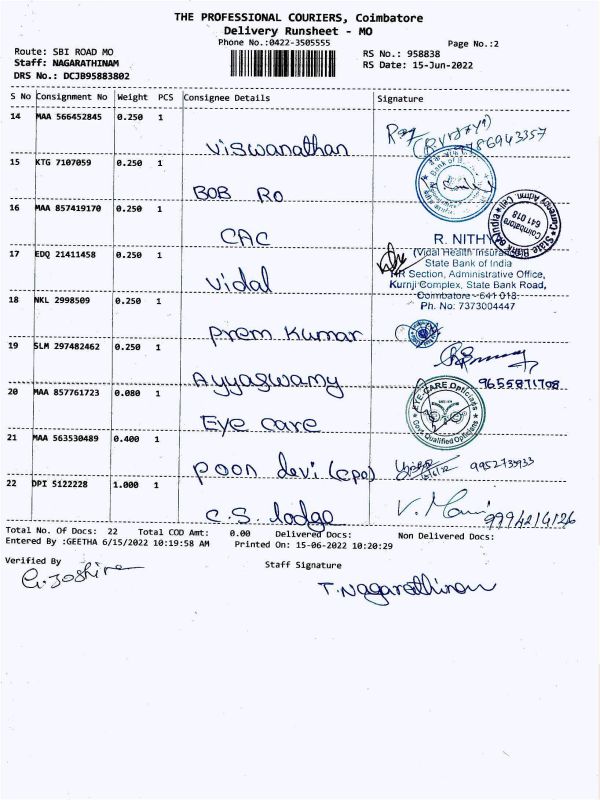 THE PROFESSIONAL COURIERS, Coimbatore
Delivery Runsheet - MO
Phone No.:0422-3505555
Page No.:2
Route: SBI ROAD MO
RS No.: 958838
Staff: NAGARATHINAM
RS Date: 15-Jun-2022
DRS No.: DCJB95883802
S No Consignment No Weight PCS Consignee Details Signature
14 MAA 566452845 0.250 1
Viswanathan
15 KTG 7107059 0.250 1
BOB RO
16 MAA 857419170 0.250 1
CAC
State Bank
Coimbatore
641 018
R. NITHY
17 EDQ 21411458 0.250 1
Vidal
(Vidal Health Insuran
State Bank of India
HR Section, Administrative Office,
Kurnji Complex, State Bank Road,
Coimbatore - 641 018.
Ph. No: 7373004447
18 NKL 2998509 0.250 1
Prem Kumar
19 SLM 297482462 0.250 1
Ayyaswamy
9655871708
20 MAA 857761723 0.080 1
Eye care
EYE CARE Opticians
Govt Qualified Opticians
21 MAA 563530489 0.400 1
Poon devi (cpo)
9952733933
22 DPI 5122228 1.000 1
C.S. lodge
V. Mani
9994214126
Total No. Of Docs: 22 Total COD Amt: 0.00 Delivered Docs: Non Delivered Docs:
Entered By :GEETHA 6/15/2022 10:19:58 AM Printed On: 15-06-2022 10:20:29
Verified By
Staff Signature
G. Joshine
T. Nagarathinam